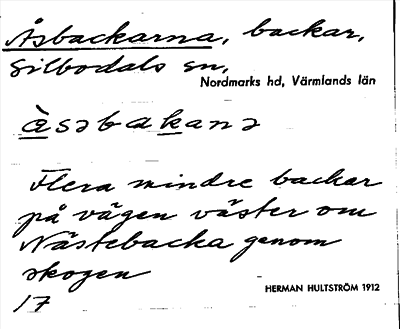 Åsbackarna, backar,
Silbodals sn,
Nordmarks hd, Värmlands län
å̀səbakanə
Flera mindre backar
på vägen väster om
Nästebacka genom
skogen
17
HERMAN HULTSTRÖM 1912